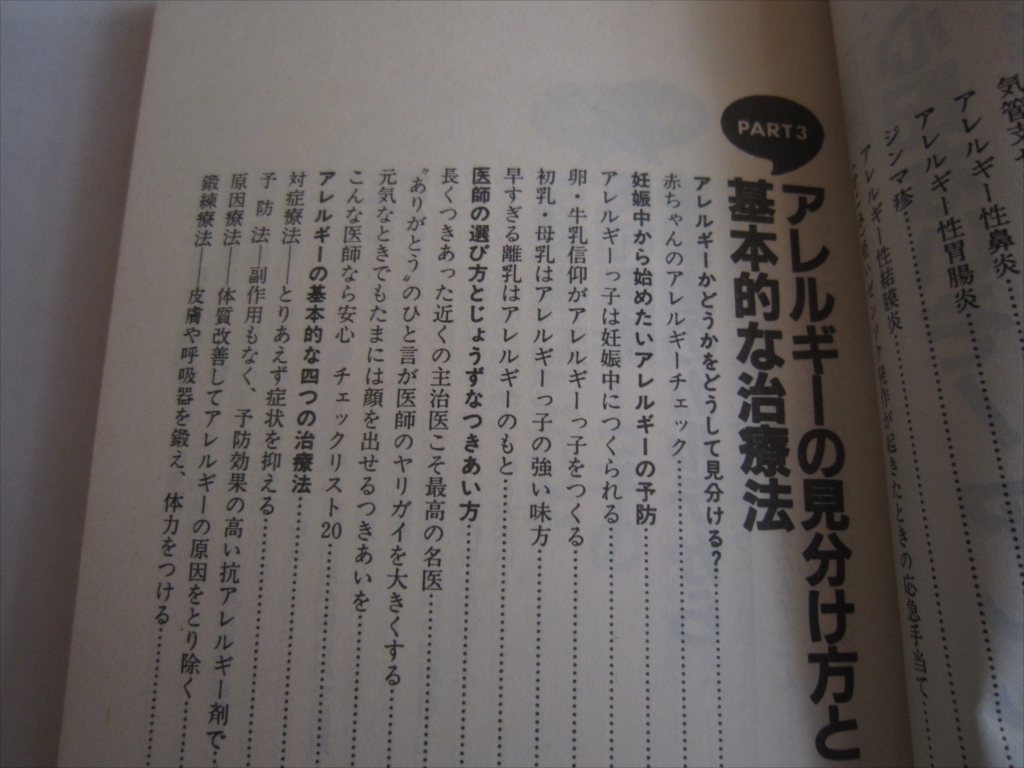 気管支
アレルギー性鼻炎
アレルギー性胃腸炎
ジンマ疹
アレルギー性結膜炎
発作が起きたときの応急手当て
PART3
アレルギーの見分け方と
基本的な治療法
アレルギーかどうかをどうして見分ける?
赤ちゃんのアレルギーチェック
妊娠中から始めたいアレルギーの予防
アレルギーっ子は妊娠中につくられる
卵・牛乳信仰がアレルギーっ子をつくる
初乳・母乳はアレルギーっ子の強い味方
早すぎる離乳はアレルギーのもと
医師の選び方とじょうずなつきあい方
長くつきあった近くの主治医こそ最高の名医
〝ありがとう〟のひと言が医師のヤリガイを大きくする
元気なときでもたまには顔を出せるつきあいを
こんな医師なら安心 チェックリスト20
アレルギーの基本的な四つの治療法
対症療法――とりあえず症状を抑える
予防法――副作用もなく、予防効果の高い抗アレルギー剤で
原因療法――体質改善してアレルギーの原因をとり除く
鍛練療法――皮膚や呼吸器を鍛え、体力をつける